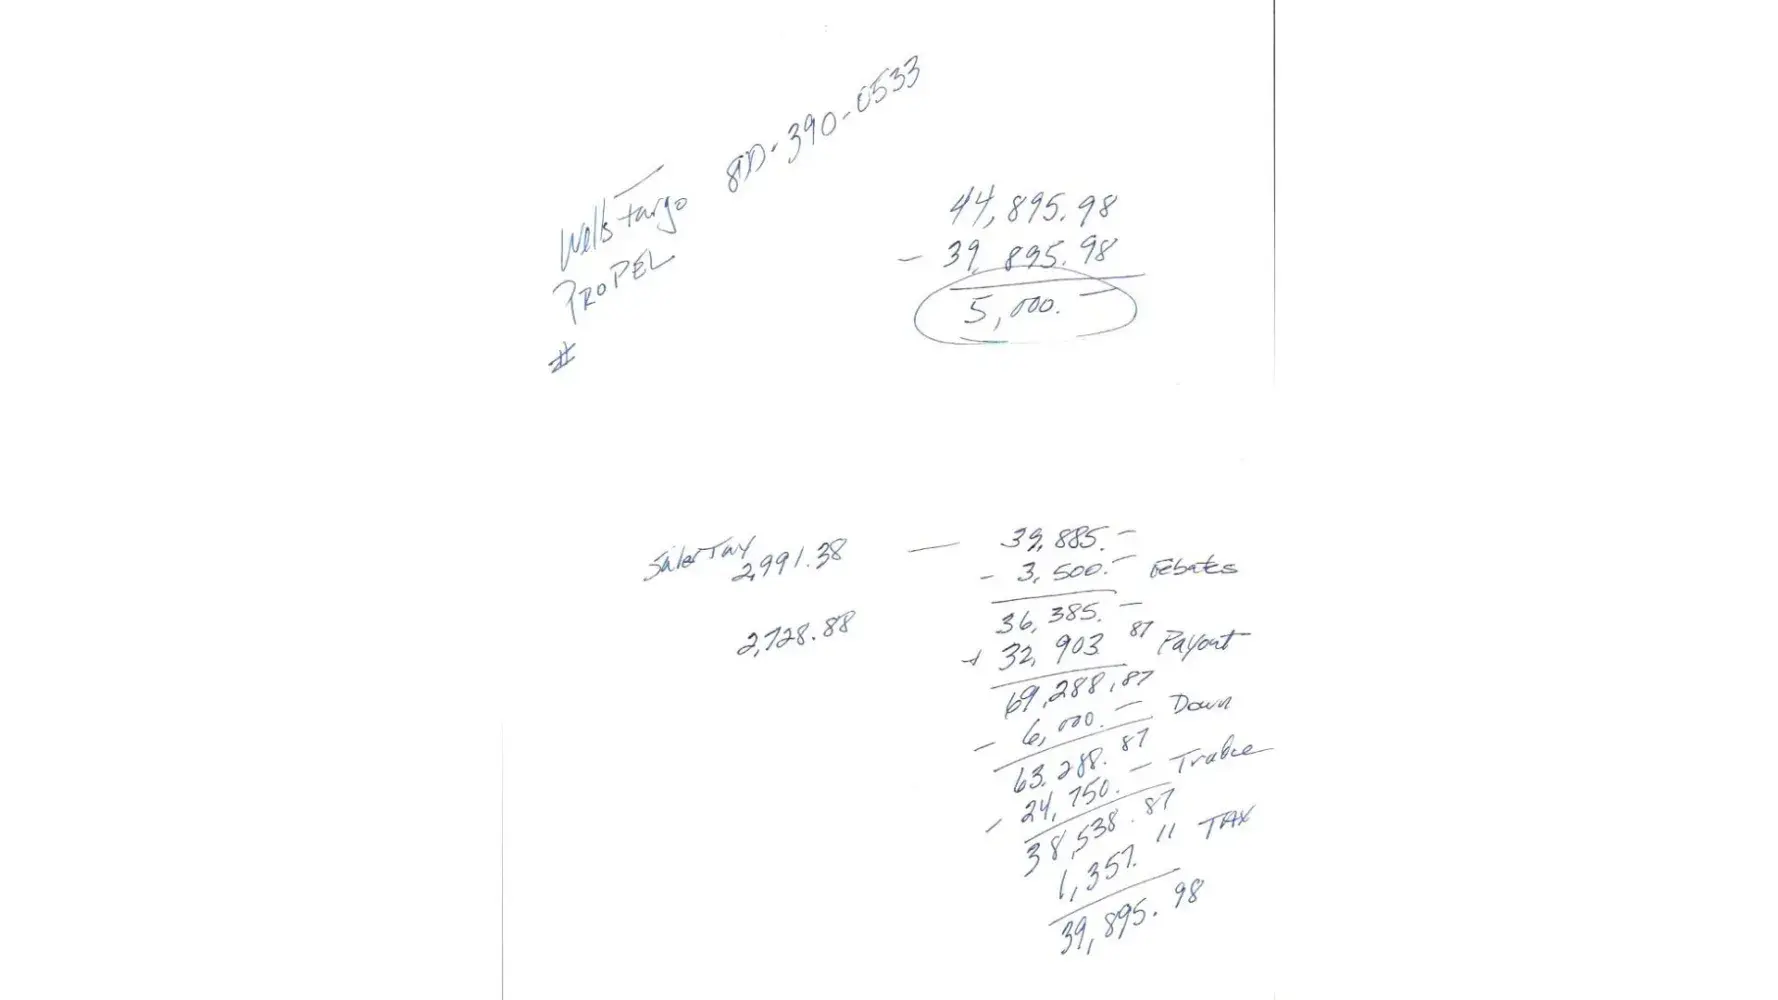 Wells Fargo 800-390-0533
PROPEL
#
44,895.98
- 39,895.98
5,000.-
Sales Tax 2,991.38 — 39,885.-
- 3,500.- Rebates
2,728.88
36,385.-
+ 32,903 87 Payout
69,288.87
- 6,000.- Down
63,288.87
- 24,750.- Trade
38,538.87
1,357.11 TAX
39,895.98